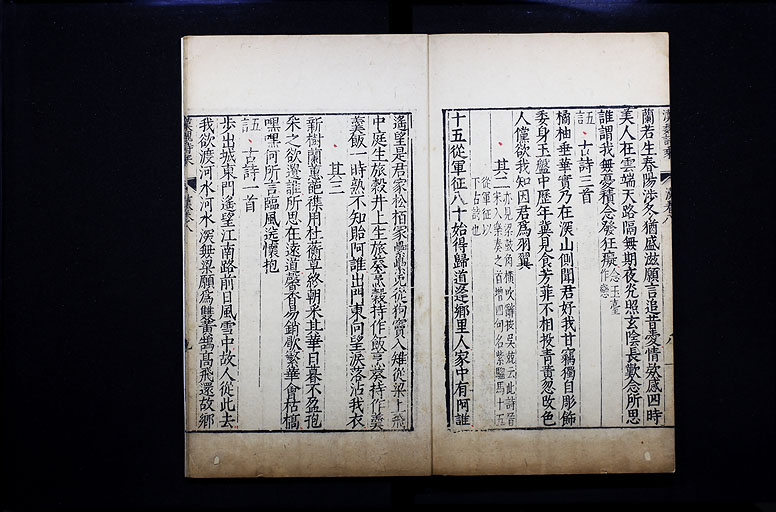 蘭若生春陽涉冬猶盛滋願言追昔愛情欵感四時
美人在雲端天路隔無期夜光照玄陰長歎念所思
誰謂我無憂積念發狂癡
五言古詩三首
橘柚垂華實乃在深山側聞君好我甘竊獨自彫飾
委身玉盤中歷年冀見食芳菲不相投青黃忽改色
人儻欲我知因君爲羽翼
其二
十五從軍征八十始得歸道逢鄉里人家中有阿誰
遙望是君家松栢冢纍纍兎從狗竇入雉從梁上飛
中庭生旅穀井上生旅葵烹穀持作飯烹葵持作羹
羹飯一時熟不知貽阿誰出門東向望淚落沾我衣
其三
新樹蘭蕙葩襍用杜蘅草終朝采其華日暮不盈抱
采之欲遺誰所思在遠道馨香易銷歇繁華會枯槁
悵望何所言臨風送懷抱
五言古詩一首
步出城東門遙望江南路前日風雪中故人從此去
我欲渡河水河水深無梁願爲雙黃鵠高飛還故鄉